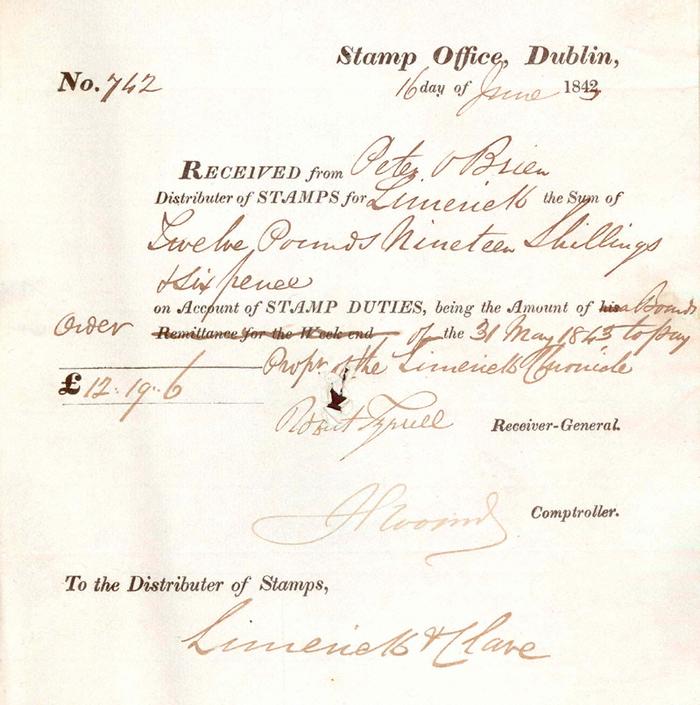 Stamp Office, Dublin,
No. 742
16 day of June 1843
RECEIVED from Peter O'Brien
Distributer of STAMPS for Limerick the Sum of
Twelve Pounds Nineteen Shillings
& six pence
on Account of STAMP DUTIES, being the Amount of his a Board
order Remittance for the Week end of the 31 May 1843 to pay
Propr of the Limerick Chronicle
£ 12. 19. 6
Tyrrell Receiver-General.
Comptroller.
To the Distributer of Stamps,
Limerick & Clare